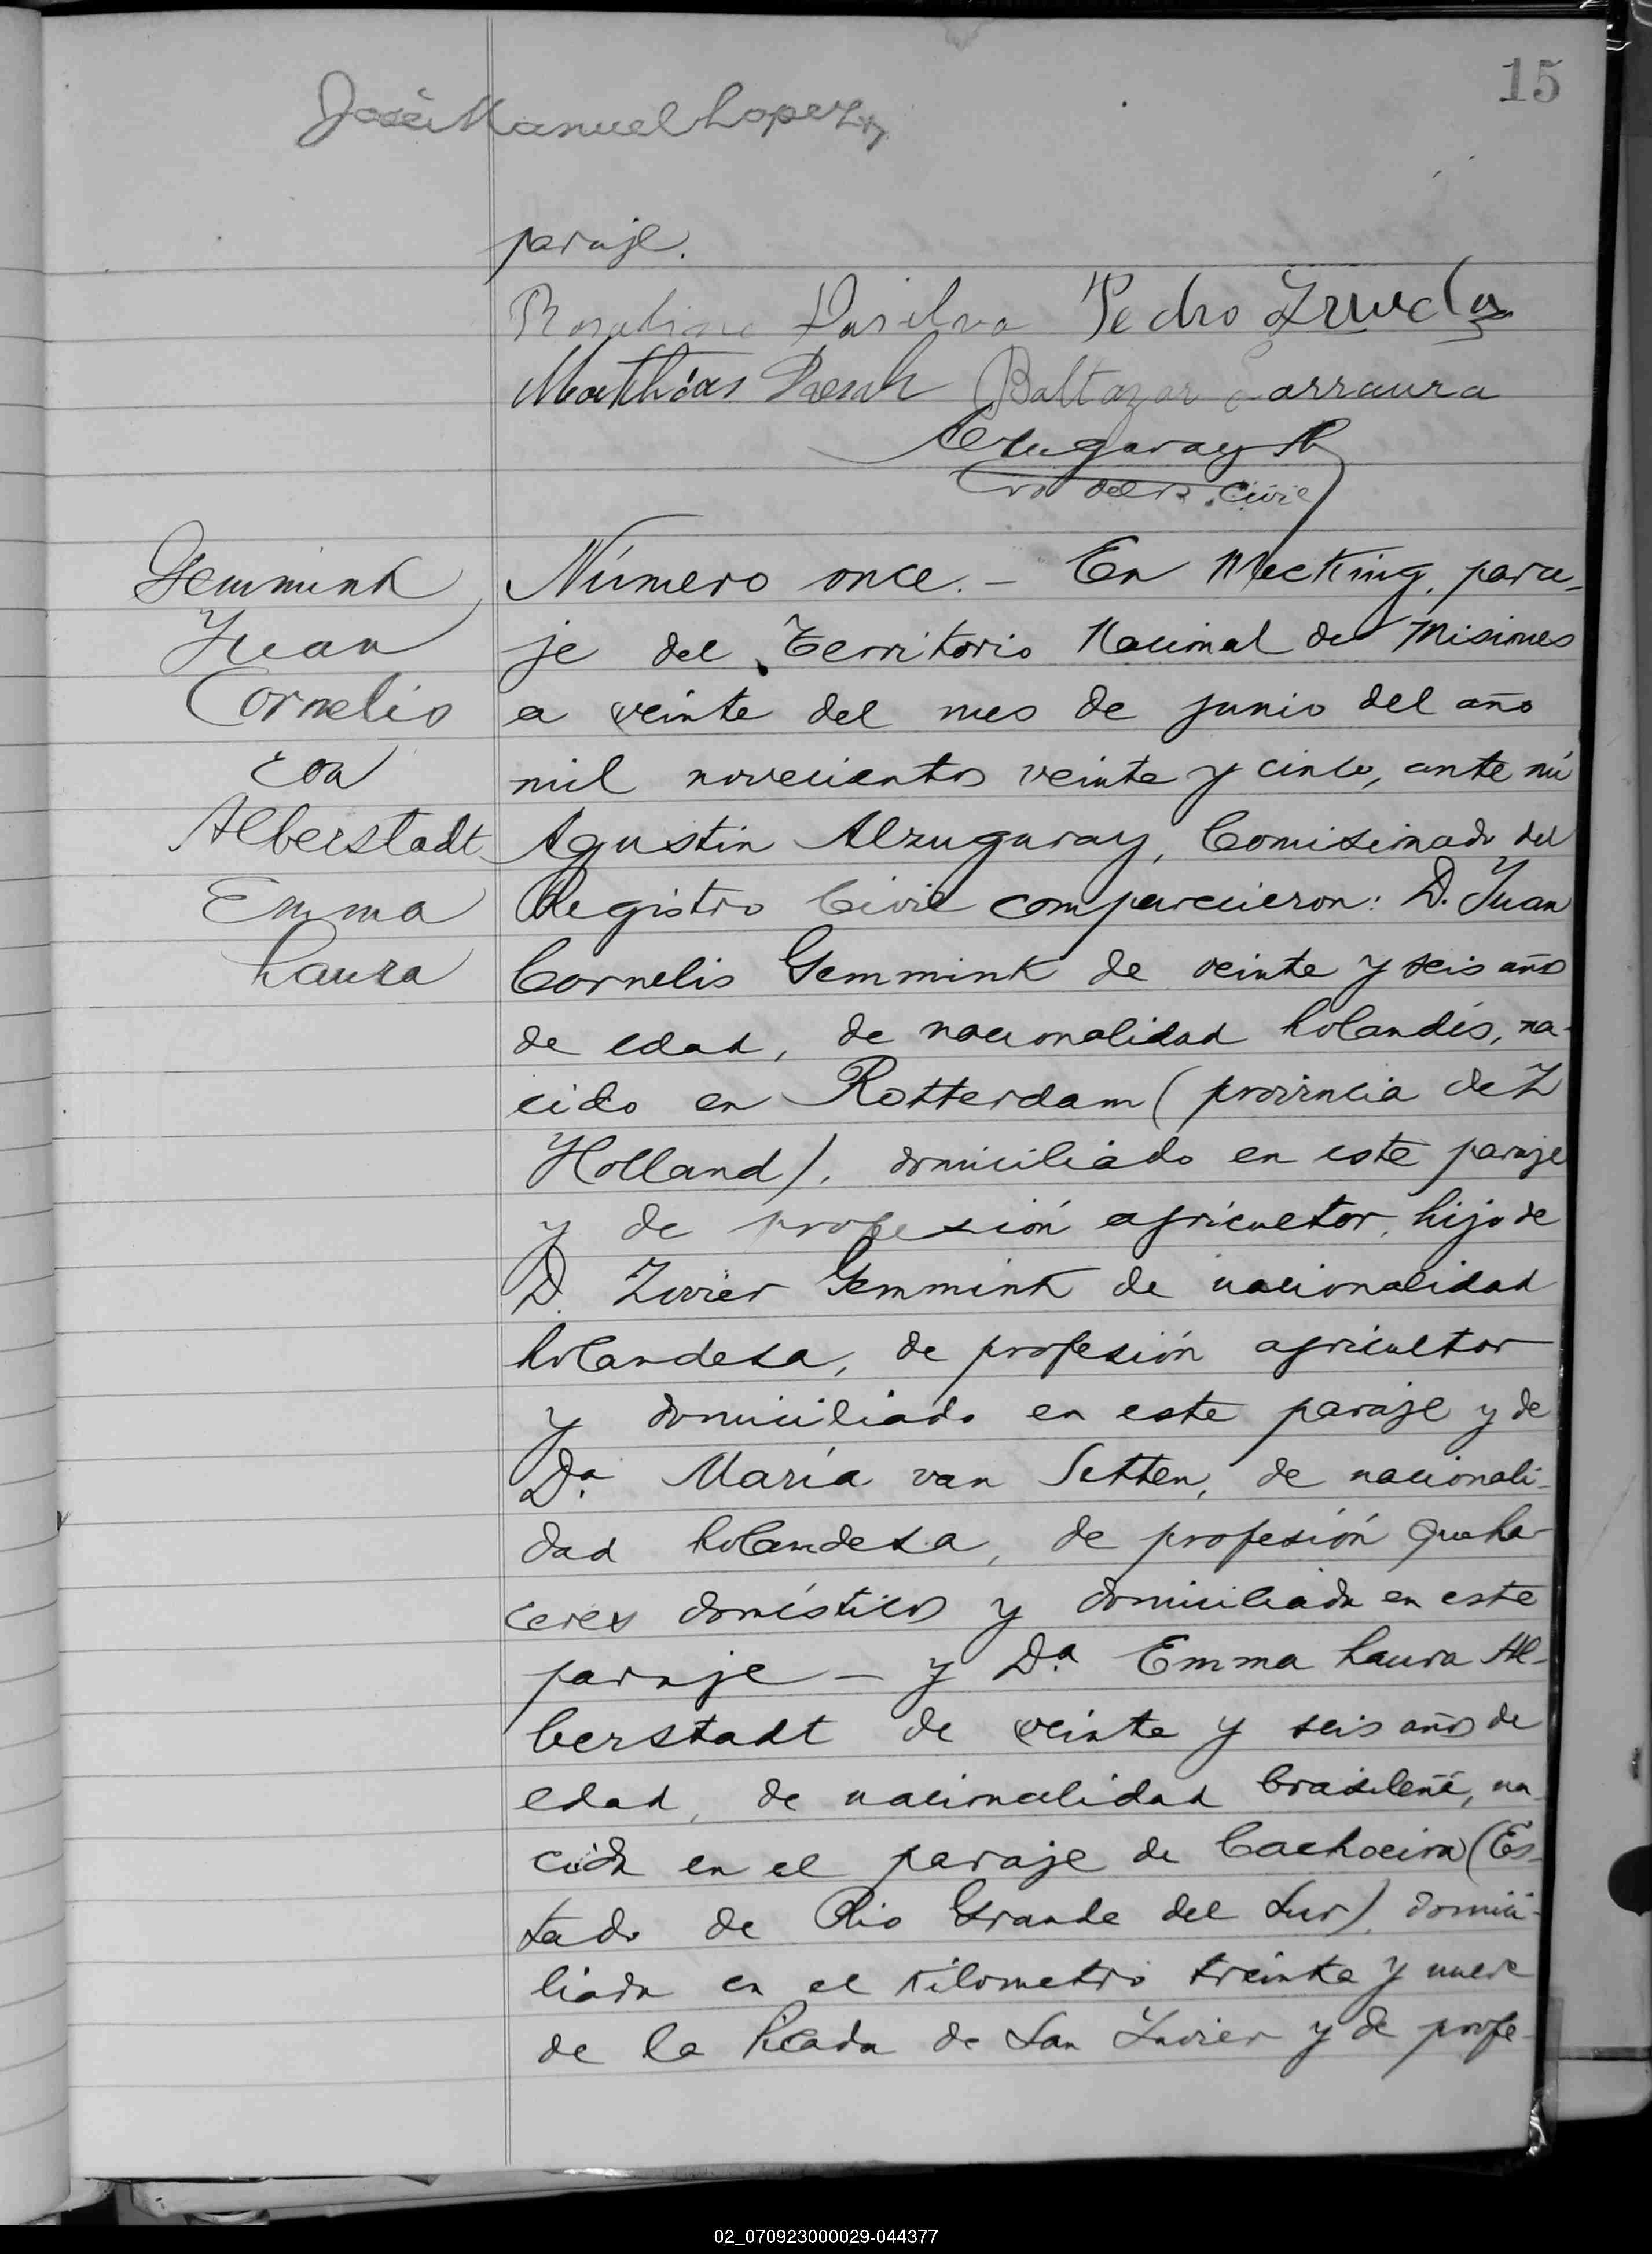 15
José Manuel Lopez
paraje.
Dasilva Pedro
Matthias Baltazar
Alzugaray
del R. Civil
Gemmink
Juan
Cornelio
con
Alberstadt
Emma
Laura
Número once. - En Mecking, para-
je del Territorio Nacional de Misiones
a veinte del mes de junio del año
mil novecientos veinte y cinco, ante mí
Agustin Alzugaray, Comisionado del
Registro Civil comparecieron: D. Juan
Cornelis Gemmink de veinte y seis años
de edad, de nacionalidad holandés, na-
cido en Rotterdam (provincia de Z
Holland), domiciliado en este paraje
y de profesión agricultor, hijo de
D. Gemmink de nacionalidad
holandesa, de profesión agricultor
y domiciliado en este paraje y de
Da. María van Setten, de nacionali-
dad holandesa, de profesión queha-
ceres domésticos y domiciliada en este
paraje - y Da. Emma Laura Al-
berstadt de veinte y seis años de
edad, de nacionalidad brasileñ, na-
cida en el paraje de Cachoeira (Es-
tado de Rio Grande del Sur), domici-
liada en el kilometro treinta y nueve
de la Picada de San Javier y de profe-
02_070923000029-044377